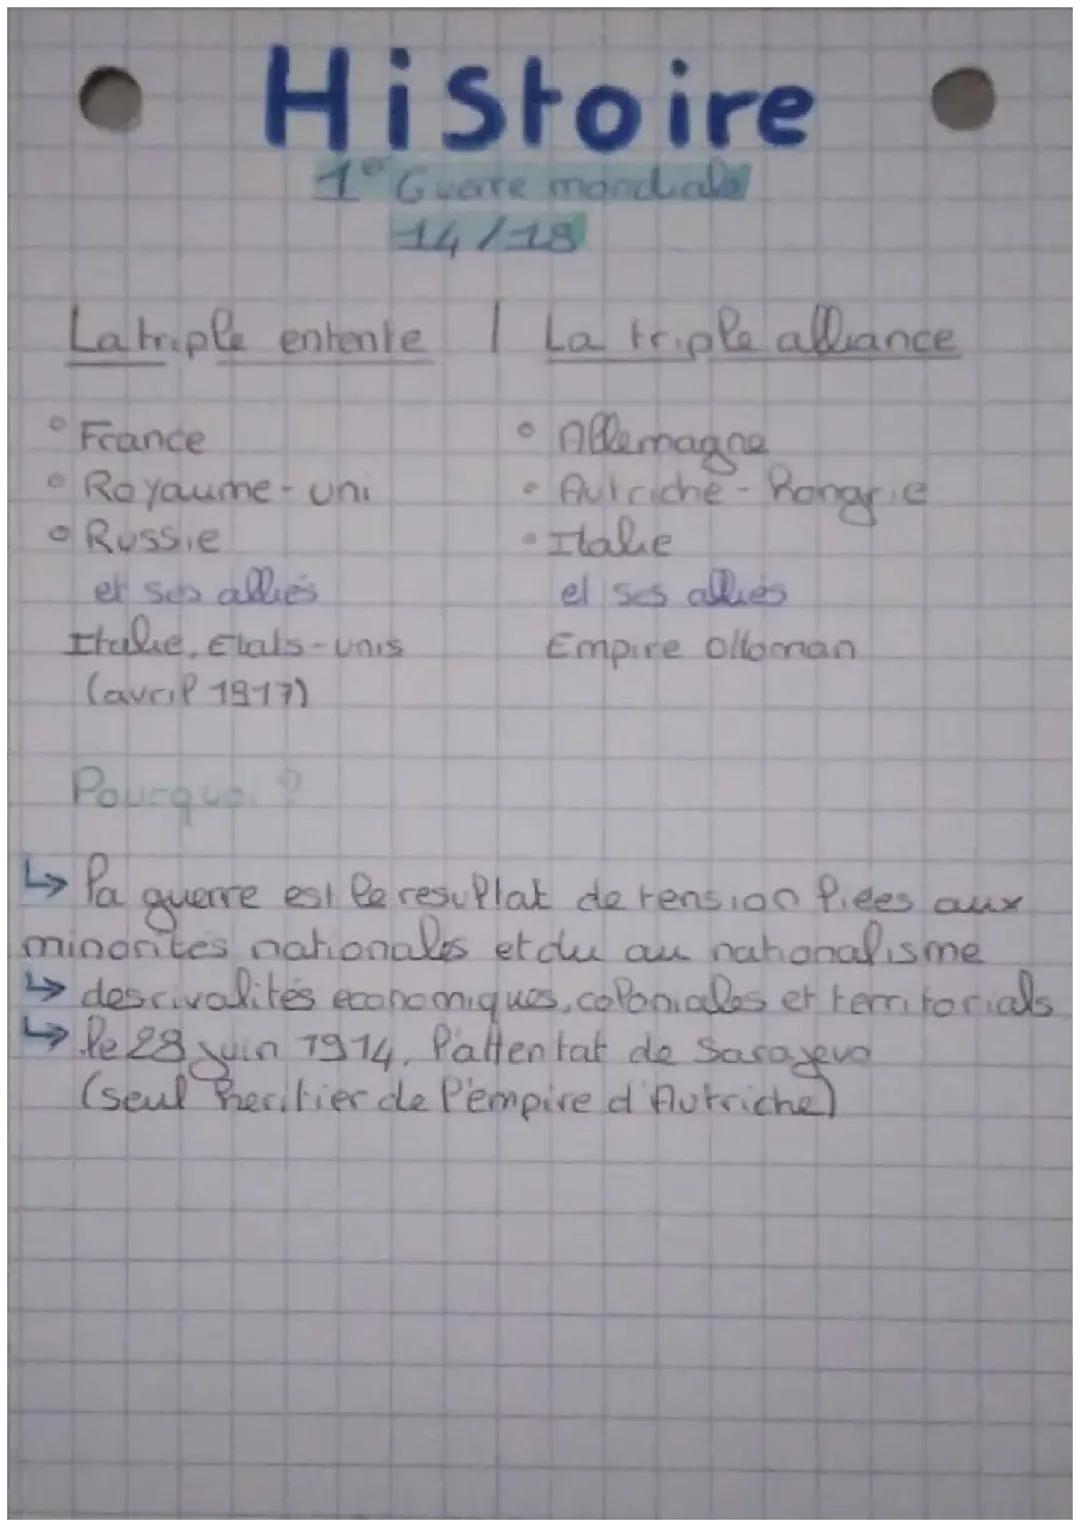 Histoire
1° Guerre mondiale
14/18
La triple entente | La triple alliance
° France
° Royaume-uni
° Russie
et ses alliés
Italie, Etats-unis
(avril 1917)
° Allemagne
° Autriche-hongrie
° Italie
et ses alliés
Empire Ottoman
Pourquoi ?
↳ la guerre est le resultat de tension liées aux
minorités nationales et du au nationalisme
↳ des rivalités economiques, coloniales et territorials
↳ le 28 juin 1914, l'attentat de Sarajevo
(seul heritier de l'empire d'Autriche)